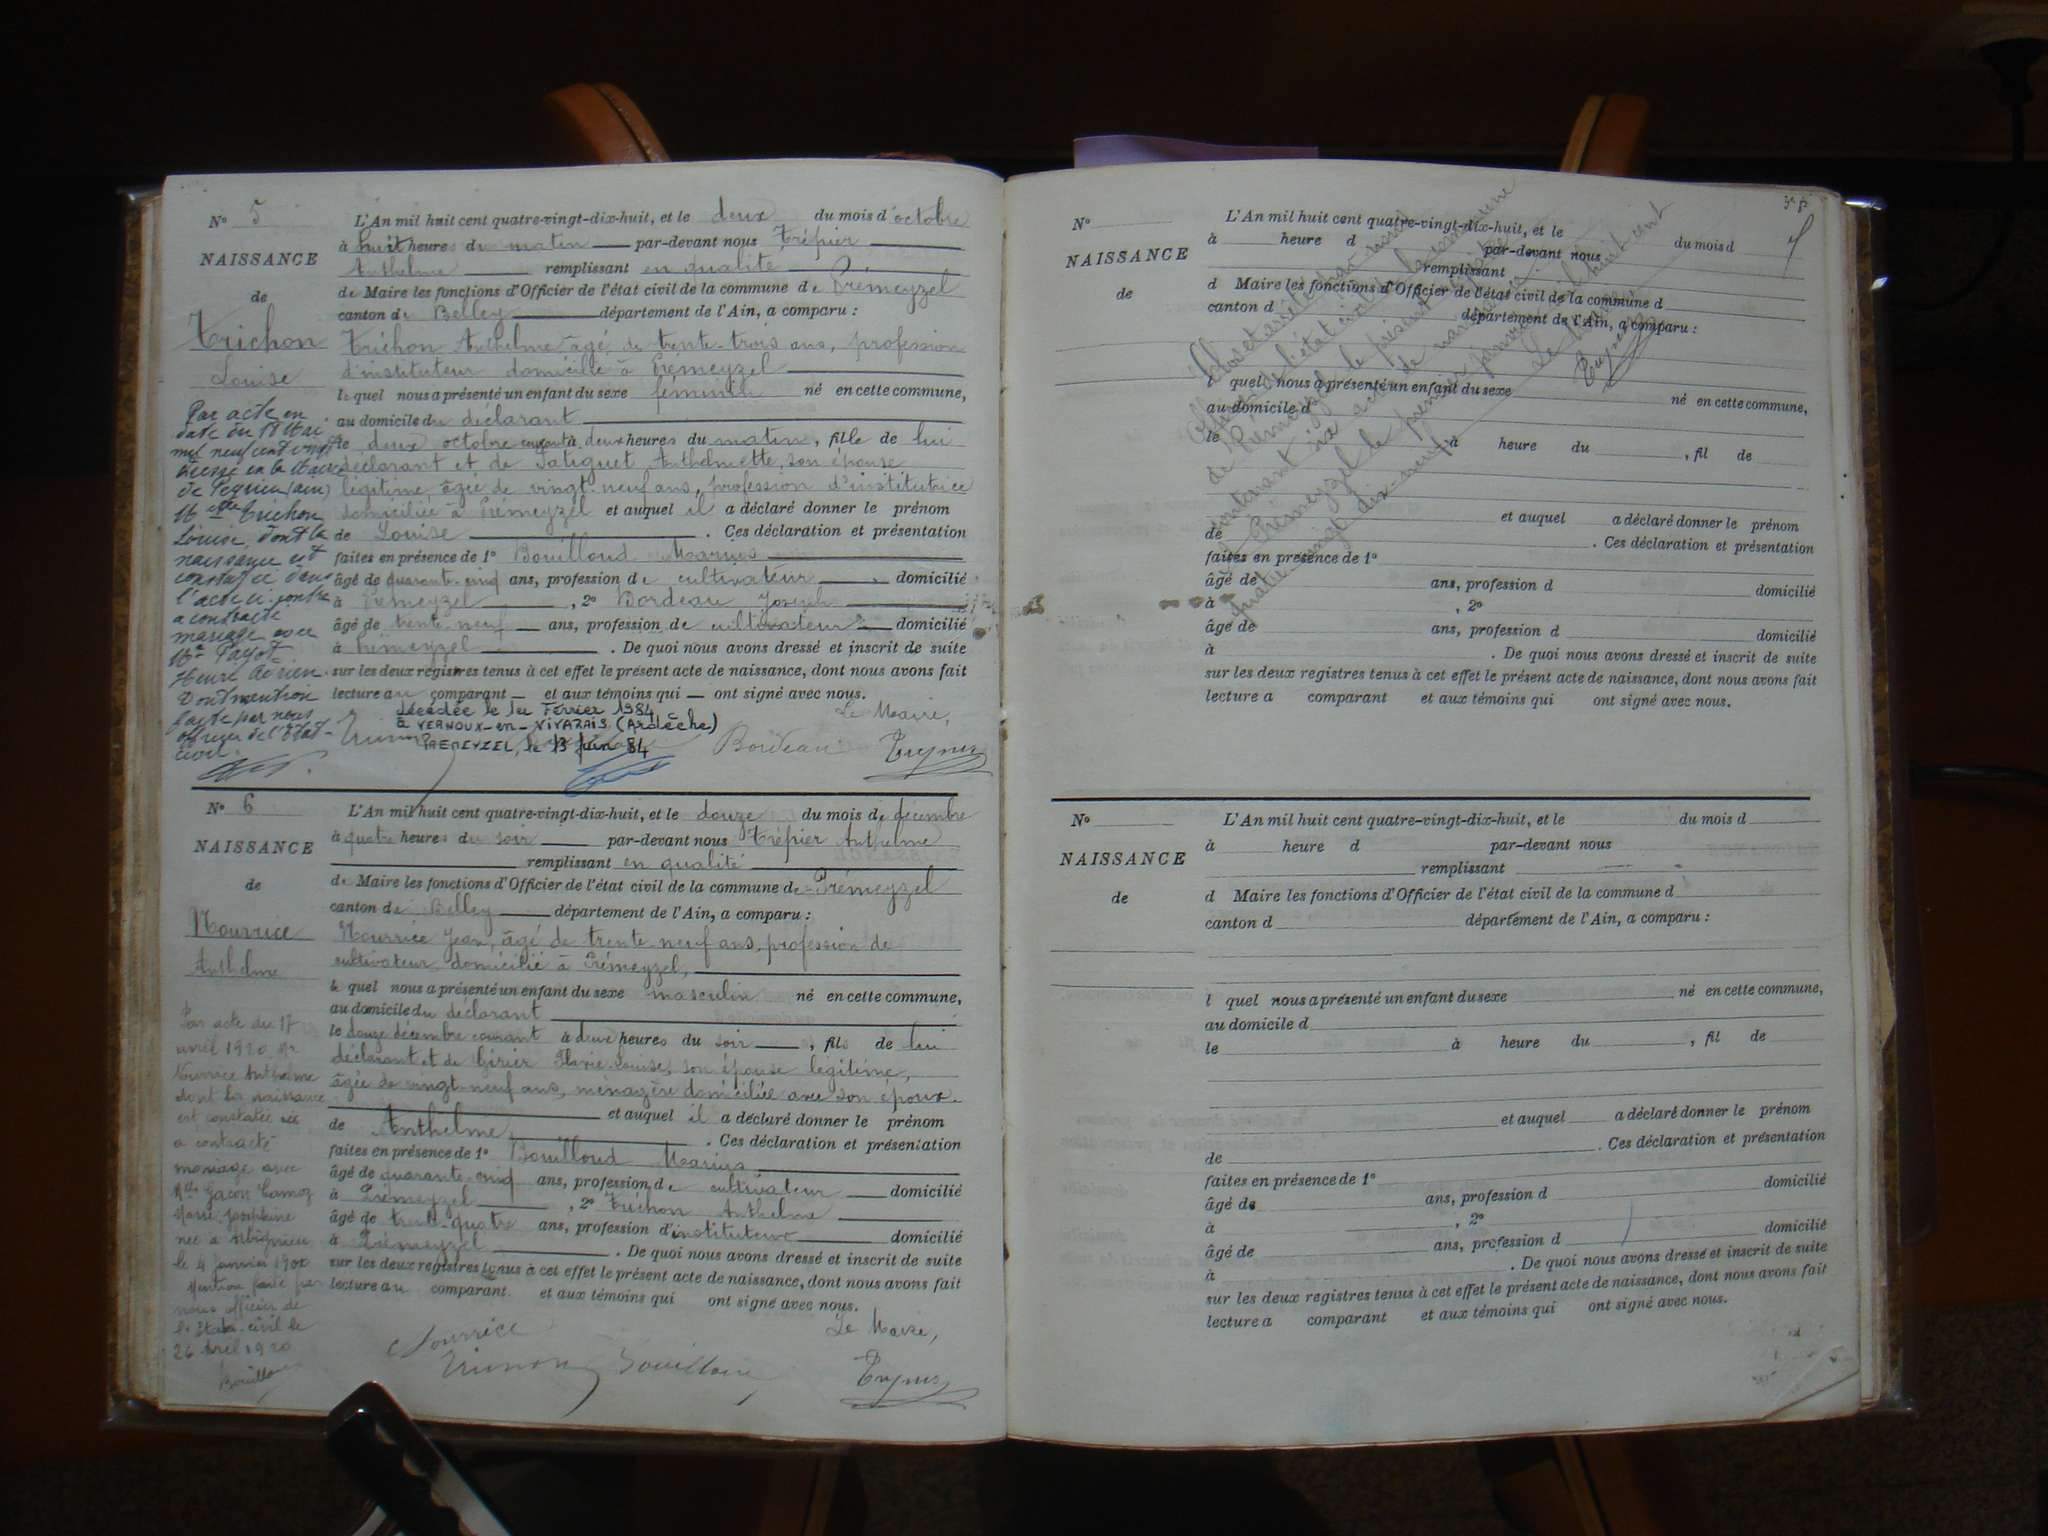 N° 5
NAISSANCE
de
Trichon
Louise
L'An mil huit cent quatre-vingt-dix-huit, et le deux du mois d'octobre
à huit heures du matin par-devant nous Trépier
Anthelme remplissant en qualité
de Maire les fonctions d'Officier de l'état civil de la commune de Prémeyzel
canton de Belley département de l'Ain, a comparu :
Trichon Anthelme âgé de trente-trois ans, profession
d'instituteur domicilié à Prémeyzel
lequel nous a présenté un enfant du sexe féminin né en cette commune,
au domicile du déclarant
le deux octobre courant à deux heures du matin, fille de lui
déclarant et de Anthelmette, son épouse
légitime, âgée de vingt-neuf ans, profession d'institutrice
domiciliée à Prémeyzel et auquel il a déclaré donner le prénom
de Louise . Ces déclaration et présentation
faites en présence de 1° Bouilloud Marius
âgé de quarante-cinq ans, profession de cultivateur domicilié
à Prémeyzel , 2° Bordeau Joseph
âgé de trente-neuf ans, profession de cultivateur domicilié
à Prémeyzel . De quoi nous avons dressé et inscrit de suite
sur les deux registres tenus à cet effet le présent acte de naissance, dont nous avons fait
lecture au comparant et aux témoins qui ont signé avec nous.
Le Maire,
Décédée le 1er Février 1984
à VERNOUX-en-VIVARAIS (Ardèche)
PREMEYZEL, le 13 Juin 84
Bordeau
Par acte en
date du 18 Mai
mil neuf cent vingt
dressé en la Mairie
de Peyrieu (ain)
Melle Trichon
Louise, dont la
naissance est
constatée dans
l'acte ci-contre
a contracté
mariage avec
Mr Payot
Henri Adrien
Dont mention
faite par nous
officier de l'État-
civil
N° 6
NAISSANCE
de
Nourrice
Anthelme
L'An mil huit cent quatre-vingt-dix-huit, et le douze du mois de décembre
à quatre heures du soir par-devant nous Trépier Anthelme
remplissant en qualité
de Maire les fonctions d'Officier de l'état civil de la commune de Prémeyzel
canton de Belley département de l'Ain, a comparu :
Nourrice Jean, âgé de trente-neuf ans, profession de
cultivateur, domicilié à Prémeyzel,
lequel nous a présenté un enfant du sexe masculin né en cette commune,
au domicile du déclarant
le douze décembre courant à deux heures du soir , fils de lui
déclarant et de Girier Marie Louise, son épouse légitime,
âgée de vingt-neuf ans, ménagère domiciliée avec son époux.
et auquel il a déclaré donner le prénom
de Anthelme . Ces déclaration et présentation
faites en présence de 1° Bouilloud Marius
âgé de quarante-cinq ans, profession de cultivateur domicilié
à Prémeyzel , 2° Trichon Anthelme
âgé de trente-quatre ans, profession d'instituteur domicilié
à Prémeyzel . De quoi nous avons dressé et inscrit de suite
sur les deux registres tenus à cet effet le présent acte de naissance, dont nous avons fait
lecture au comparant et aux témoins qui ont signé avec nous.
Le Maire,
Nourrice
Par acte du 17
avril 1920 Mr
Nourrice Anthelme
dont la naissance
est constatée
a contracté
mariage avec
Melle
Marie Joséphine
née à Arbignieu
le 4 janvier 1900
Mention faite par
nous officier de
l'Etat-civil le
26 Avril 1920
N°
NAISSANCE
de
L'An mil huit cent quatre-vingt-dix-huit, et le du mois d
à heure d par-devant nous
remplissant
d Maire les fonctions d'Officier de l'état civil de la commune d
canton d département de l'Ain, a comparu :
l quel nous a présenté un enfant du sexe né en cette commune,
au domicile d
le à heure du , fil de
et auquel a déclaré donner le prénom
de . Ces déclaration et présentation
faites en présence de 1°
âgé de ans, profession d domicilié
à , 2°
âgé de ans, profession d domicilié
à . De quoi nous avons dressé et inscrit de suite
sur les deux registres tenus à cet effet le présent acte de naissance, dont nous avons fait
lecture a comparant et aux témoins qui ont signé avec nous.
Clos et arrêté par nous
Officier de l'état civil de la commune
de Prémeyzel le présent registre
contenant six actes de naissances
à Prémeyzel le premier janvier mil huit cent
quatre-vingt-dix-neuf
Le Maire
N°
NAISSANCE
de
L'An mil huit cent quatre-vingt-dix-huit, et le du mois d
à heure d par-devant nous
remplissant
d Maire les fonctions d'Officier de l'état civil de la commune d
canton d département de l'Ain, a comparu :
l quel nous a présenté un enfant du sexe né en cette commune,
au domicile d
le à heure du , fil de
et auquel a déclaré donner le prénom
de . Ces déclaration et présentation
faites en présence de 1°
âgé de ans, profession d domicilié
à , 2°
âgé de ans, profession d domicilié
à . De quoi nous avons dressé et inscrit de suite
sur les deux registres tenus à cet effet le présent acte de naissance, dont nous avons fait
lecture a comparant et aux témoins qui ont signé avec nous.